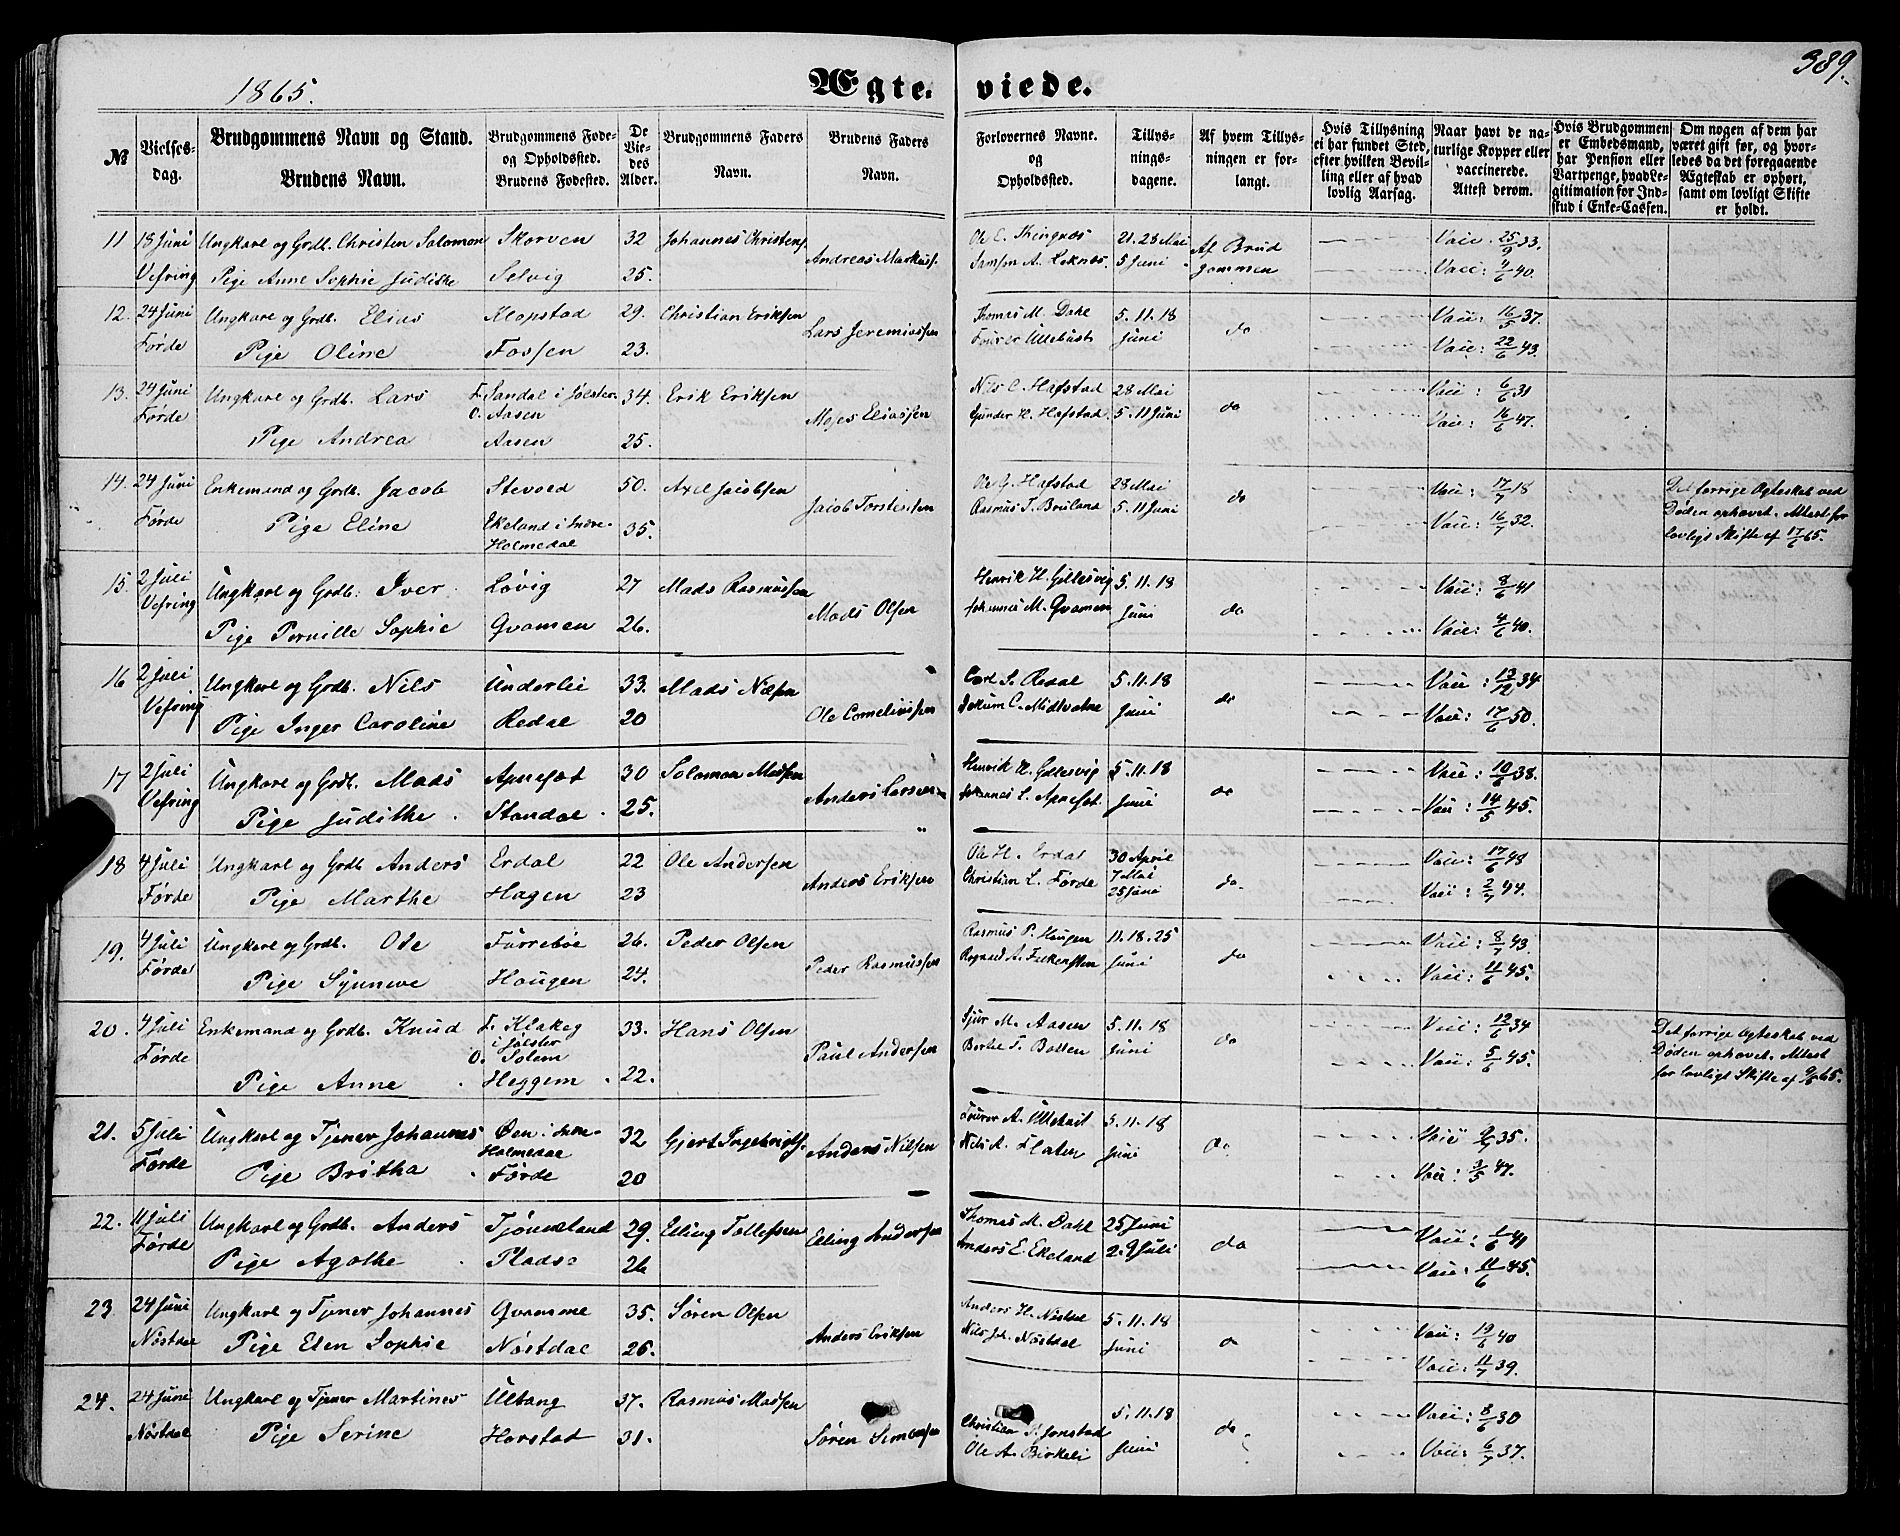 389.
1865.
Ægte- viede.
№
Vielses-
dag.
Brudgommens Navn og Stand.
Brudens Navn.
Brudgommens Føde-
og Opholdssted.
Brudens Fødested.
De
Vie-
des
Alder.
Brudgommens Faders
Navn.
Brudens Faders
Navn.
Forlovernes Navne.
og
Opholdssted.
Tillys-
nings-
dagene.
Af hvem Tillys-
ningen er for-
langt.
Hvis Tillysning
ei har fundet Sted,
efter hvilken Bevil-
ling eller af hvad
lovlig Aarsag.
Naar havt de na-
turlige Kopper eller
vaccinerede.
Attest derom.
Hvis Brudgommen
er Embedsmand,
har Pension eller
Vartpenge, hvad Le-
gitimation for Ind-
skud i Enke-Cassen.
Om nogen af dem har
været gift før, og hvor-
ledes da det foregaaende
Ægteskab er ophørt,
samt om lovligt Skifte
er holdt.
11 18 Juni Ungkarl og Grdb. Christen Salomon Skorven 32 Johannes Christens. Andreas Markuss. Ole E. Thingnæs 21. 28 Mai Af Brud Vacc. 25/9 33.
Vefring Pige Anne Sophie Judithe Selvig 25. Samson A. Leknæs. 5 Juni gommen Vacc: 4/6 40.
12. 24 Juni Ungkarl og Grdb. Elias Klopstad 29. Christian Eriksen Lars Jeremiassen Thomas M. Dahl 5. 11. 18 do Vacc: 16/5 37.
Førde Pige Oline Fossen 23. Ullebust Juni Vacc: 22/6 43.
13. 24 Juni Ungkarl og Grdb. Lars F. Sandal i Jølster 34. Erik Eriksen Moses Eliassen Nils C. Hafstad 28 Mai do Vacc: 6/6 31
Førde O. Aasen Gunder H. Hafstad 5. 11 Juni Vacc: 16/6 47.
Pige Andrea Aasen 25.
14. 24 Juni Enkemand og Grdb. Jacob Stevold 50. Axel Jacobsen Jacob Torstensen Ole G. Hafstad 28 Mai do Vacc: 17/7 18 Det forrige Ægteskab ved
Førde Pige Eline Ekeland i Indre- 35. Rasmus T. Bruland 5. 11 Juni Vacc: 16/7 32. Døden ophævet. Attest for
Holmedal lovligt Skifte af 17/6 65.
15. 2 Juli Ungkarl og Grdb. Iver Løvig 27 Mads Rasmussen Mads Olsen Henrik H. Gjellesvig 5. 11. 18 do Vacc: 8/6 41
Vefring Pige Pernille Sophie Qvamen 26. Johannes M. Qvamen Juni Vacc: 4/6 40.
16 2 Juli Ungkarl og Grdb. Nils Underlie 33. Mads Nilsen Ole Corneliussen Carl S. Redal 5. 11. 18 do Vacc: 13/12 34
Vefring Pige Inger Caroline Redal 20 C. Midtvatne Juni Vacc: 17/6 50.
17 2 Juli Ungkarl og Grdb. Mads Apneset 30 Salomon Madsen Anders Larsen Henrik H. Gjellesvig 5. 11. 18 do Vacc: 10/6 38.
Vefring Pige Judithe Standal 25. Johannes L. Apneset. Juni Vacc: 14/5 45.
18 4 Juli Ungkarl og Grdb Anders Erdal 22 Ole Andersen Anders Eriksen Ole H. Erdal 30 April do Vacc: 17/6 48
Førde Pige Marthe Hagen 23 Christian L. Førde 7 Mai Vacc: 2/7 44.
25 Juni
19. 4 Juli Ungkarl og Grdb. Ole Farrebøe 26. Peder Olsen Peder Rasmussen Rasmus P. Haugen 11. 18. 25 do Vacc: 8/7 43
Førde Pige Synneve Haugen 24. Juni Vacc: 11/6 45.
20. 4 Juli Enkemand og Grdb. Knud F. Klakeg 33. Hans Olsen Paul Andersen Sjur M. Aasen 5. 11. 18 do Vacc: 12/6 34 Det forrige Ægteskab ved
Førde i Jølster Bertel T. Botten Juni Vacc: 5/6 45. Døden ophævet. Attest
O. Solem for lovligt Skifte af 9/6 65.
Pige Anne Heggem 22.
21. 5 Juli Ungkarl og Tjener Johannes Øen i Indre- 32 Gjert Ingebrigts. Anders Nilsen A. Ullebust 5. 11. 18 do Vacc 9/7 35.
Førde Holmedal Nils A. Flaten Juni
Pige Britha Førde 20 Vacc: 3/5 47.
22. 11 Juli Ungkarl og Grdb. Anders Tjønneland 29. Elling Tollefsen Elling Andersen Thomas M. Dahl 25 Juni do Vacc: 1/6 41
Førde Pige Agathe Pladse 26 Anders E. Ekeland 2. 9 Juli Vacc: 11/6 45.
23. 24 Juni Ungkarl og Tjener Johannes Qvamme 35. Søren Olsen Anders Eriksen Anders H. Nøstdal 5. 11. 18 do Vacc: 19/6 40
Nøstdal Pige Elen Sophie Nøstdal 26. Nils Joh. Nøstdal Juni Vacc: 11/7 39.
24. 24 Juni Ungkarl og Tjener Martines Ultang 37. Rasmus Madsen Søren Simonsen Christian S. Jonstad 5. 11. 18 do Vacc: 8/6 30
Nøstdal Pige Serine Horstad 31. Ole A. Birkeli Juni Vacc: 6/7 37.